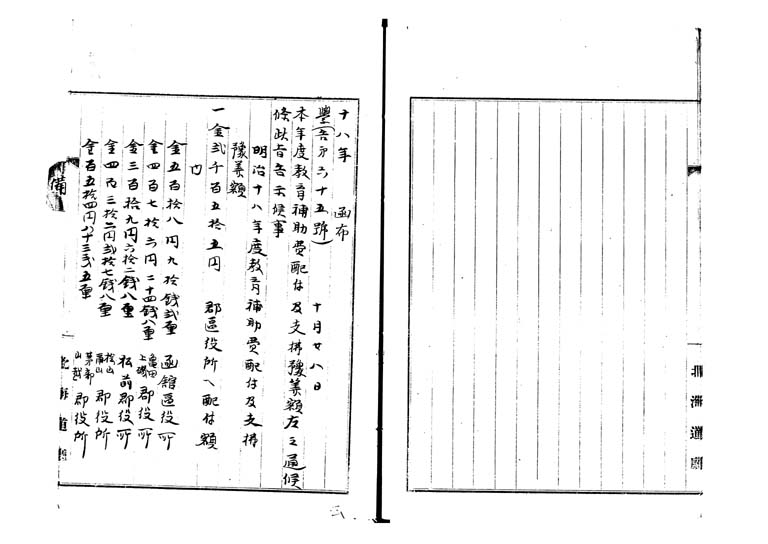 十八年 函布
學(否第六十五號) 十月廿八日
本年度教育補助費配付及支拂豫算額左之通候
條此旨告示候事
明治十八年度教育補助費配付及支拂
豫算額
一金弐千百五拾五円 郡區役所ヘ配付額
内
金五百拾八円九拾銭弐厘 函館區役所
金四百七拾六円二十四銭八厘 亀田上磯郡役所
金三百拾九円六拾二銭八厘 松前郡役所
金四百三拾二円弐拾七銭八厘 桧山爾山郡役所
金百五拾四円八十三銭五厘 茅部山越郡役所
備
北海道